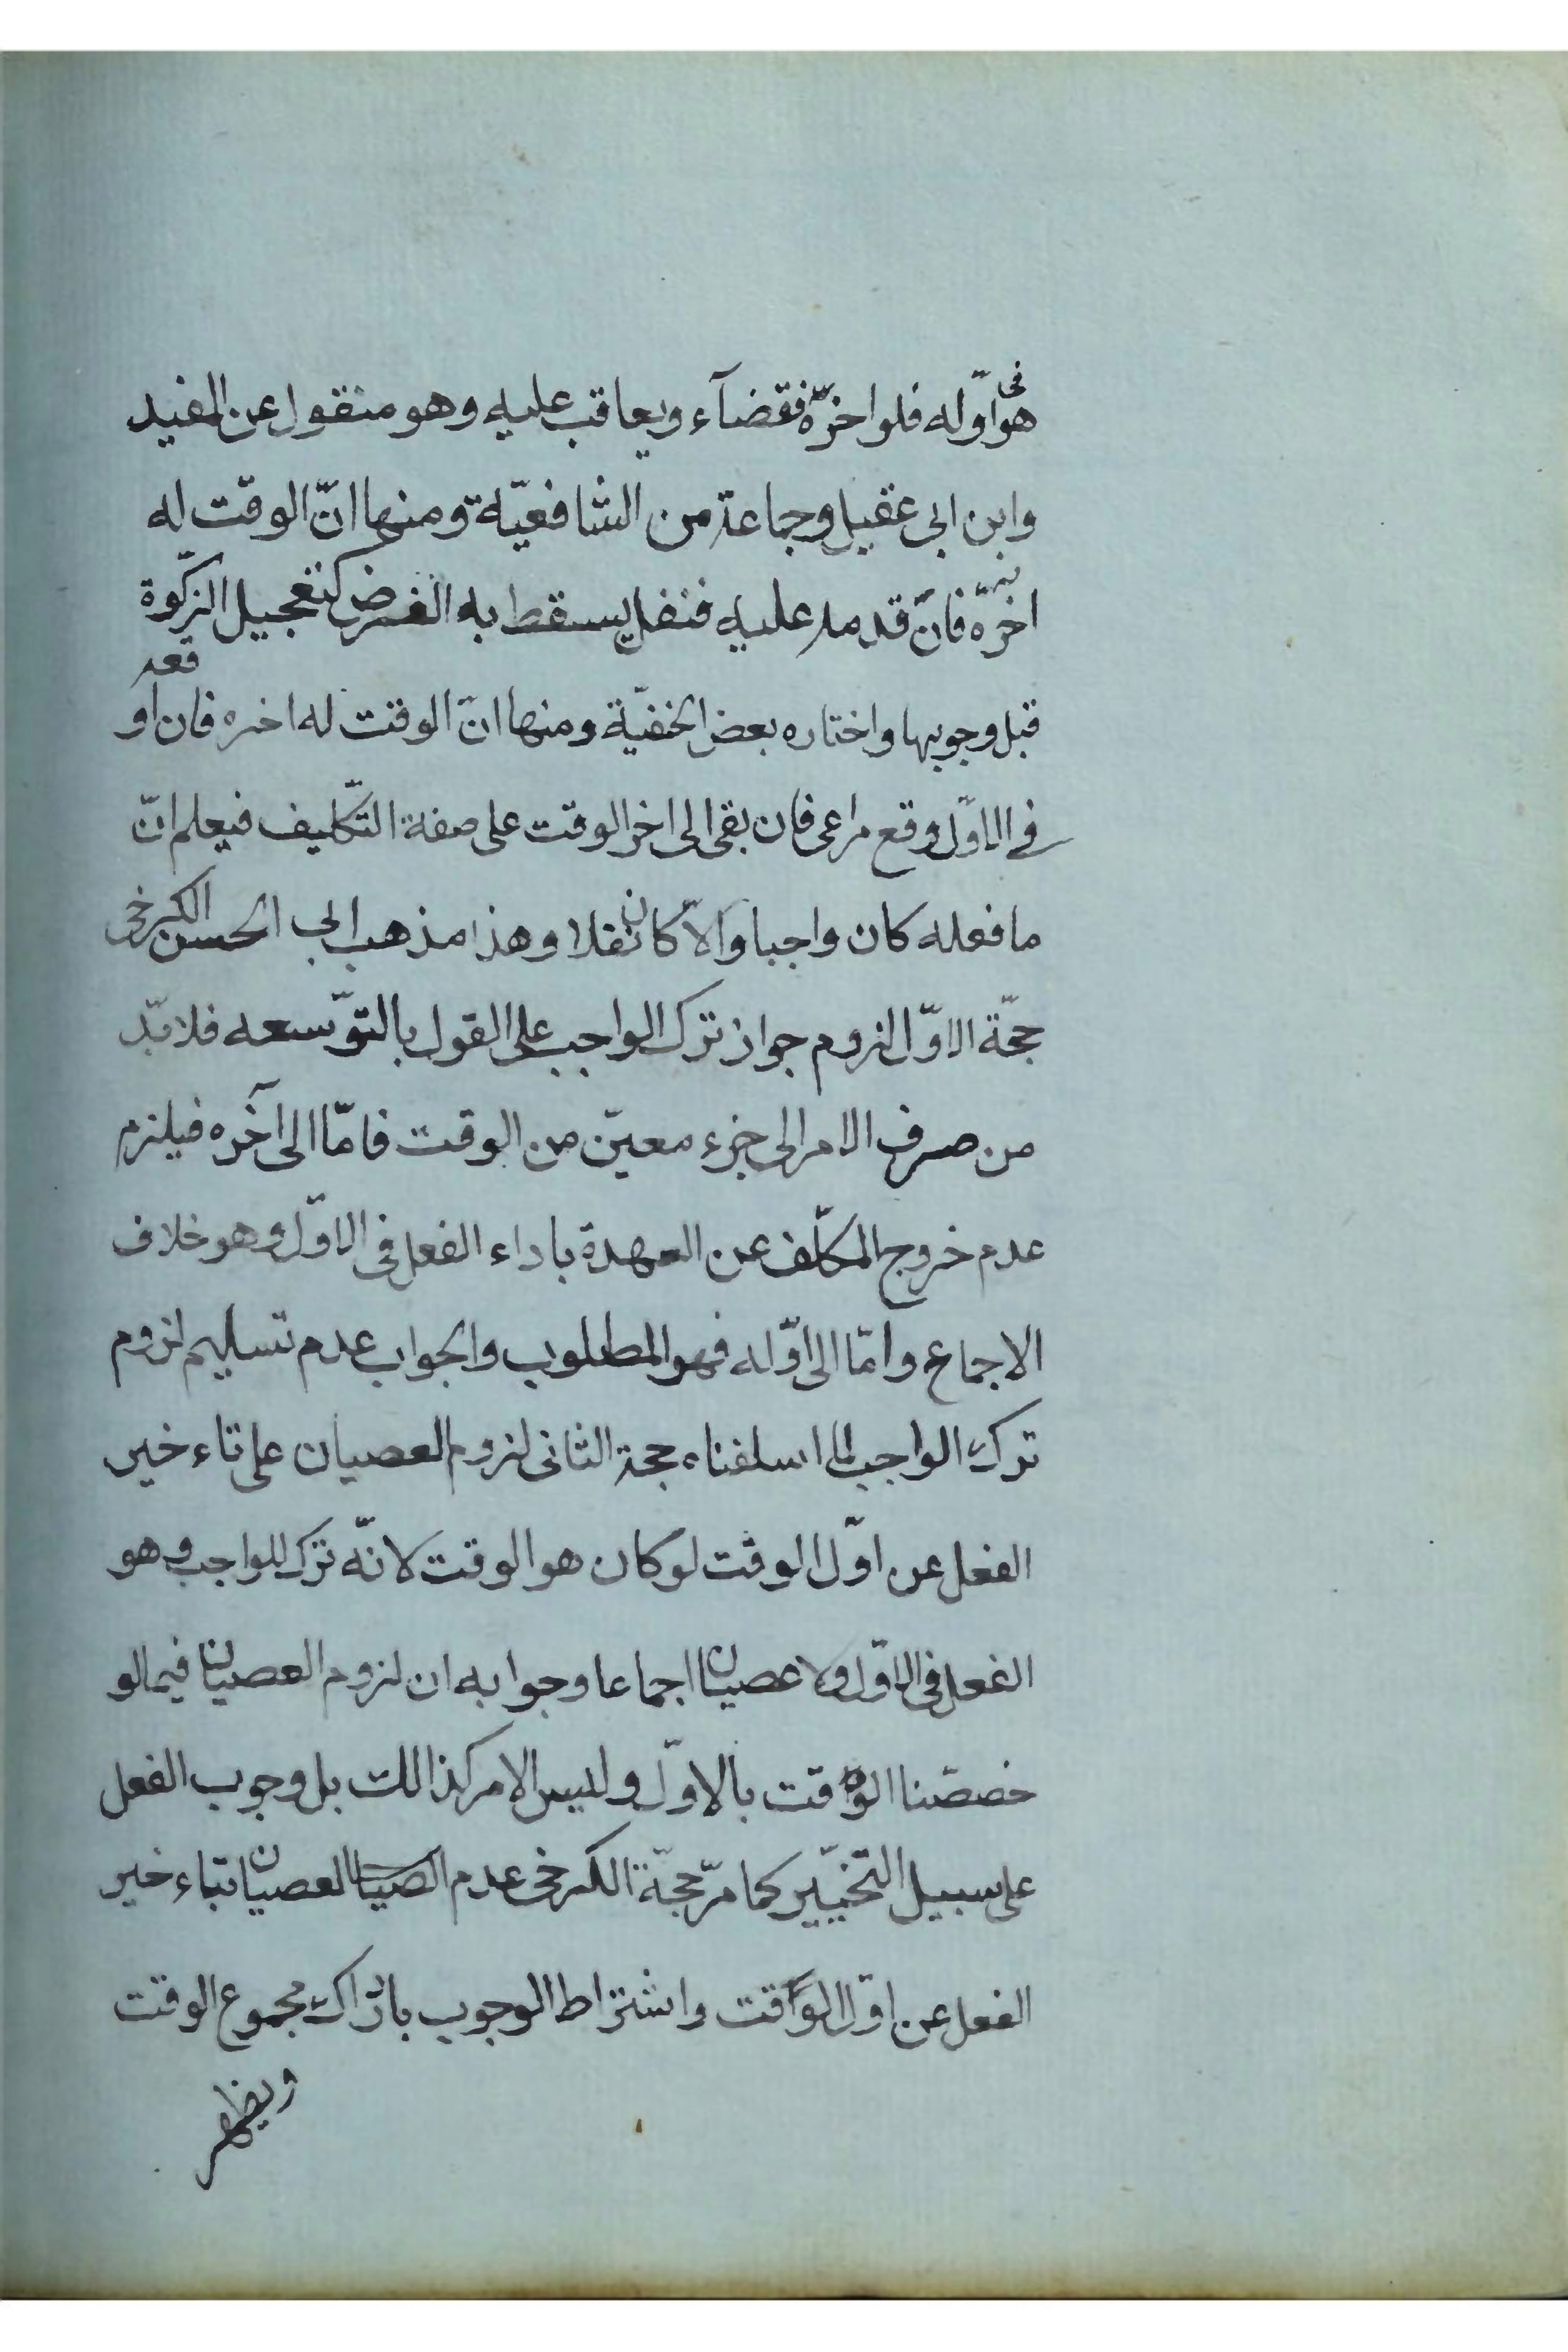 هو فى اوّله فلو اخرّه فقضآء ويعاقب عليه وهو منقول عن المفيد
وابن ابى عقيل وجماعة من الشافعيّة ومنها انّ الوقت له
اخرّه فانّ قدمه عليه فنفل يسقط به الفرض كتعجيل الزكّوة
قبل وجوبها واختاره بعض الحنفيّة ومنها انّ الوقت له اخره فان اوقعه
فى الاوّل وقع مراعى فان بقى الى اخر الوقت على صفة التّكليف فيعلم انّ
ما فعله كان واجبا والّا كان نفلا وهذا مذهب ابى الحسن الكرخى
حجّة الاوّل لزوم جواز ترك الواجب على القول بالتوّسعه فلا بّد
من صرف الامر الى جزء معيّن من الوقت فامّا الى آخره فيلزم
عدم خروج المكلّف عن العهدة باداء الفعل فى الاوّل وهو خلاف
الاجماع وامّا الى اوّله فهو المطلوب والجواب عدم تسليم لزوم
ترك الواجب لما اسلفناه حجة الثانى لزوم العصيان على تاء خير
الفعل عن اوّل الوقت لو كان هو الوقت لانّه ترك للواجب وهو
الفعل فى الاوّل ولا عصيان اجماعا وجوابه ان لزوم العصيان فيما لو
خصصّنا الوقت بالاوّل وليس الامر كذالك بل وجوب الفعل
على سبيل التّخييّر كما مرّ حجّة الكرخى عدم العصيان بتاء خير
الفعل عن اوّل الوقت واشتراط الوجوب بادراك مجموع الوقت
ويظهر